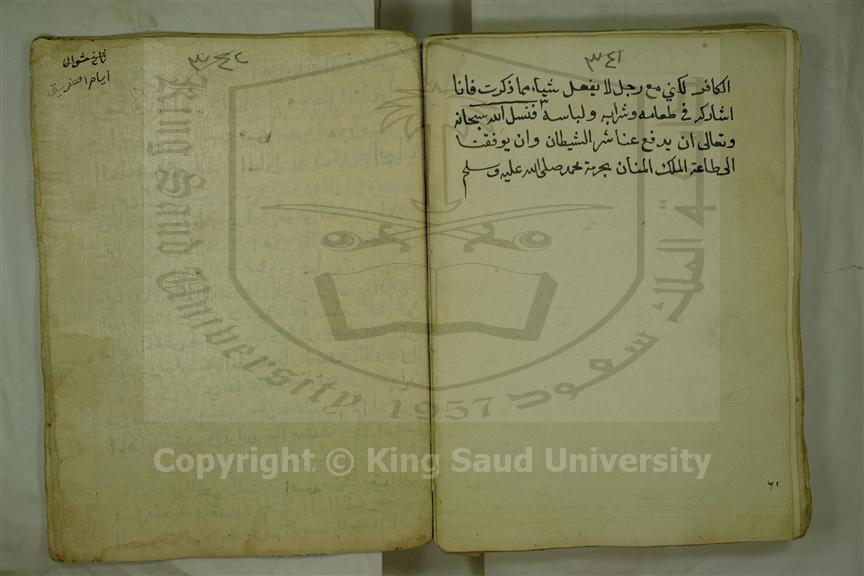 ٣٤١
الكافر لكني مع رجل لا يفعل شياء مما ذكرت فانا
اشاركه في طعامه وشرابه ولباسه فنسل الله سبحانه
وتعالى ان يدفع عنا شر الشيطان وان يوفقنا
الى طاعة الملك المنان بحرمة محمد صلى الله عليه وسلم
٦٢
٣٤٢
شوال
ايام
King Saud University
1957
جامعة الملك سعود
Copyright © King Saud University